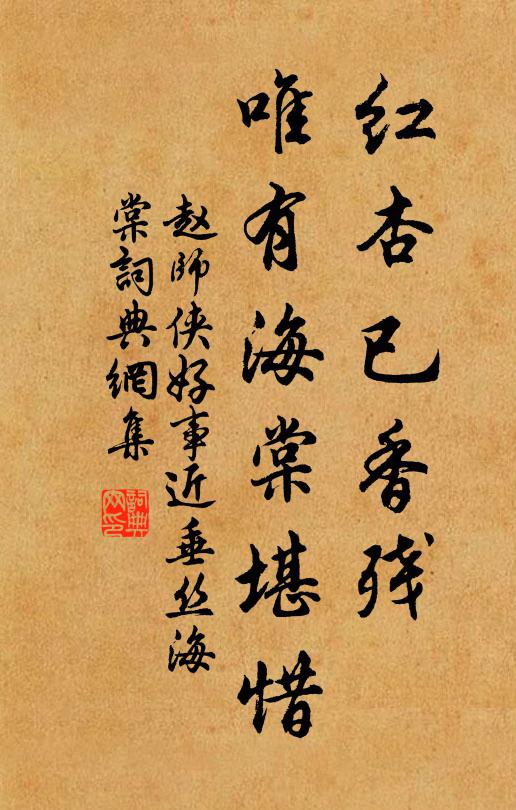 红杏已香残
唯有海棠堪惜
赵师侠好事近垂丝海
棠詞典網集
詞典
网印